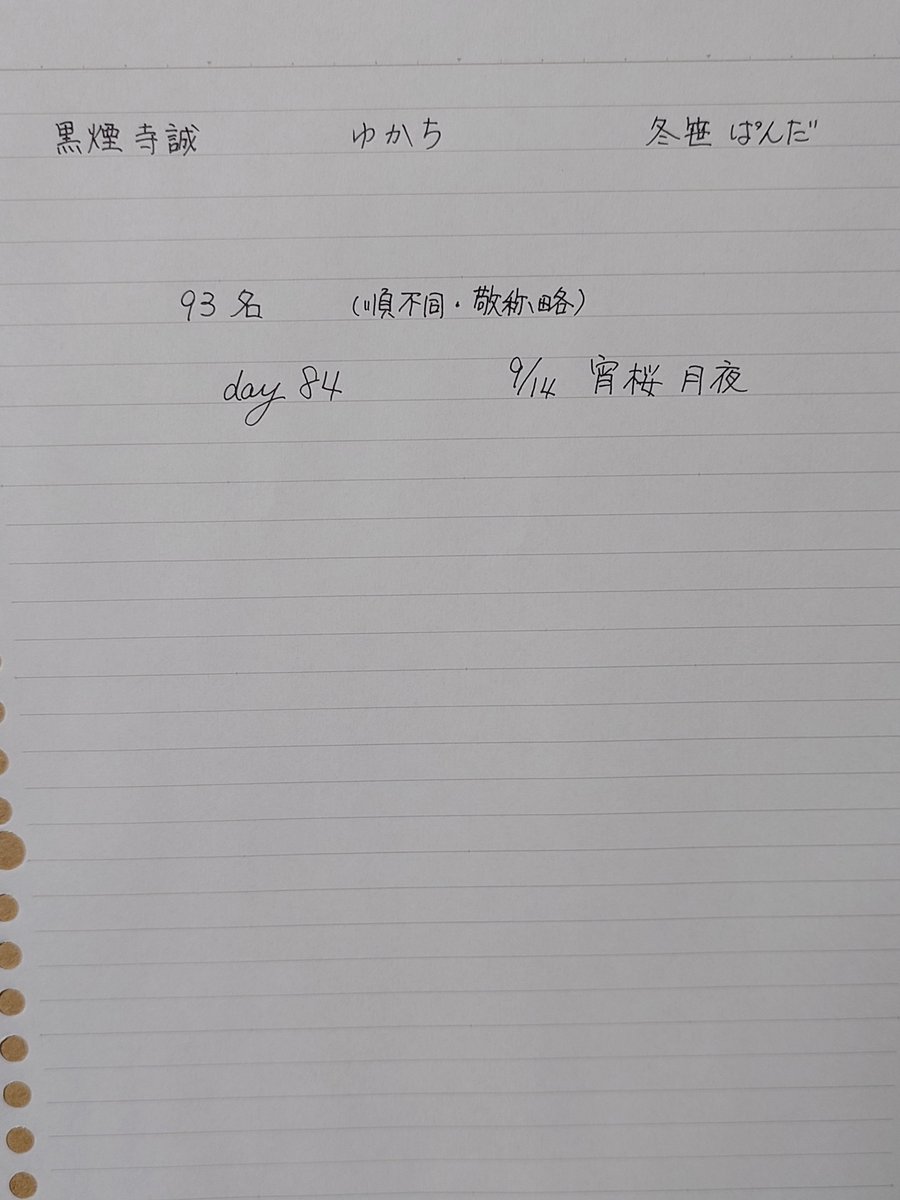 黒煙寺誠 ゆかち 冬笹ぱんだ
93名 (順不同・敬称略)
day 84 9/14 宵桜月夜